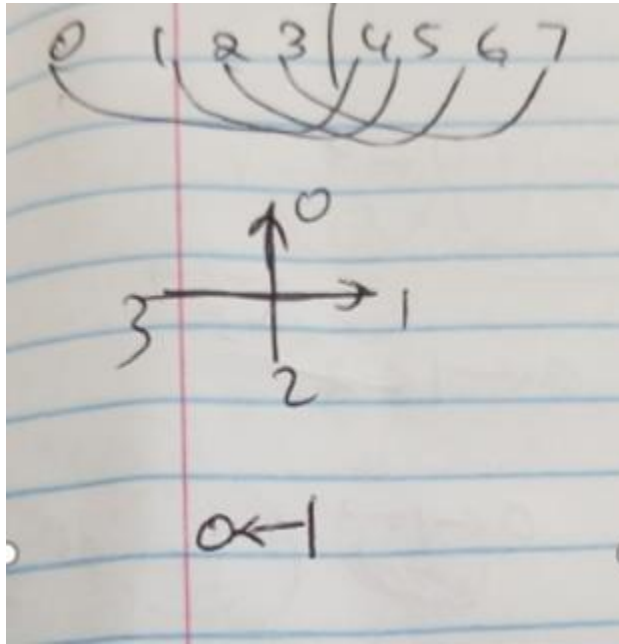 0 1 2 3 | 4 5 6 7
0
3 1
2
0←1